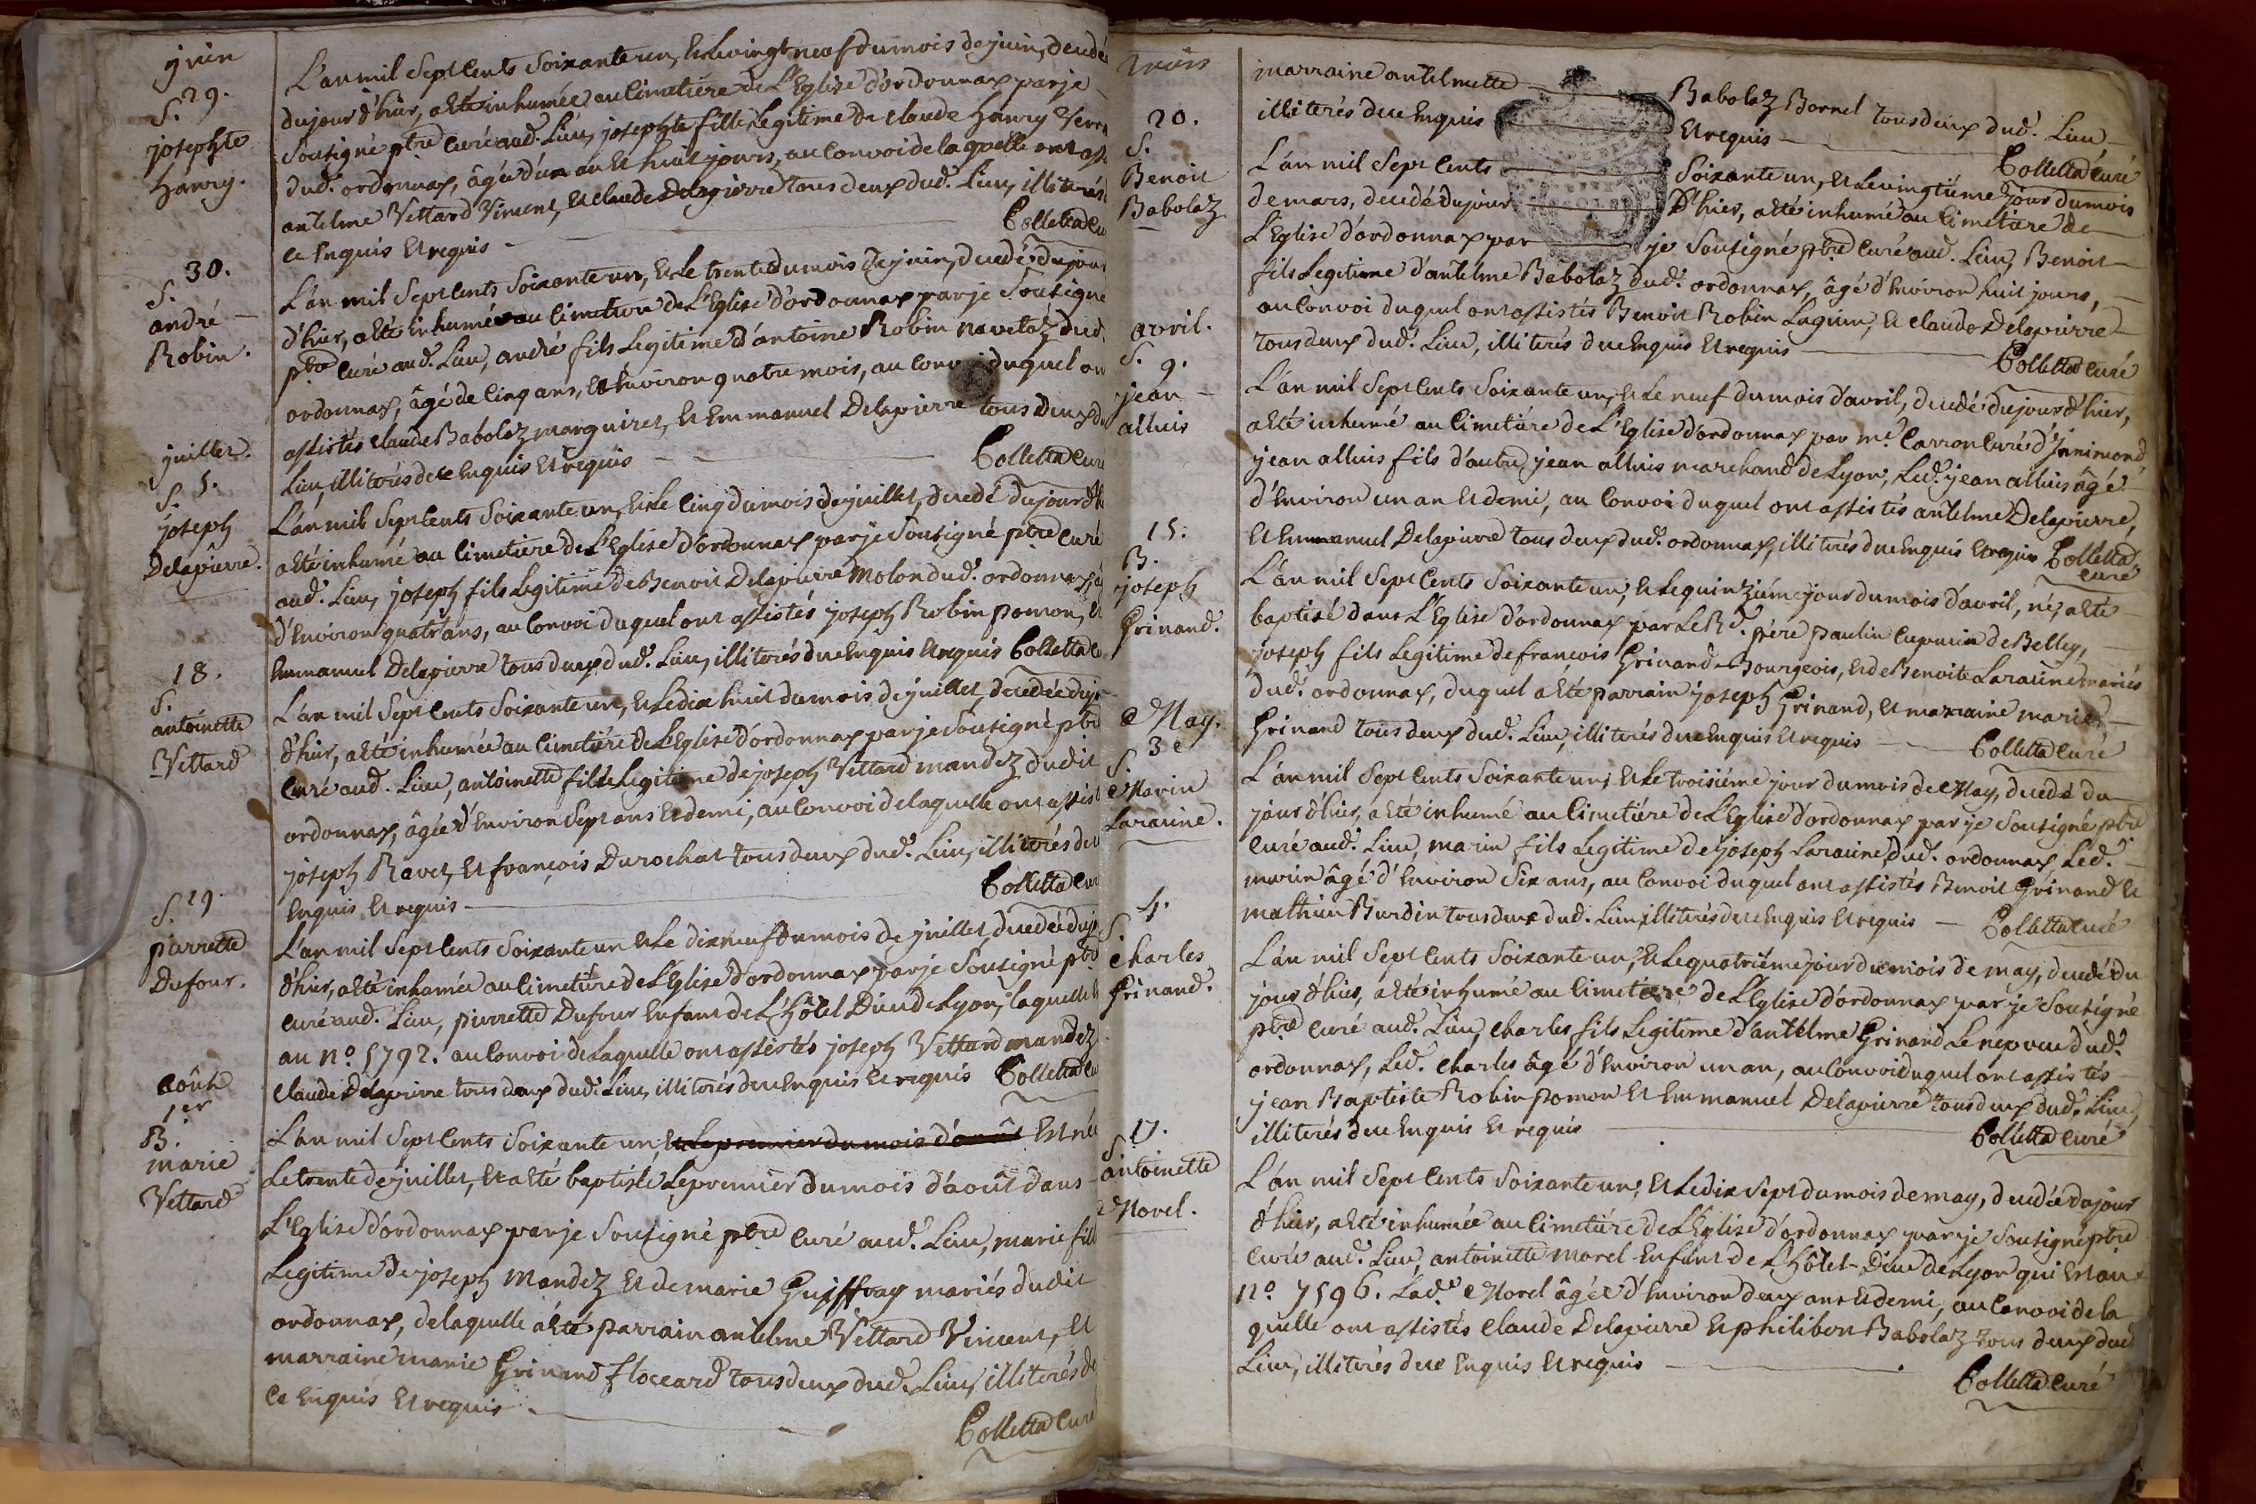 juin
S. 29.
josephte
hanry.
L'an mil sept cents soixante un, et le vingt neuf du mois de juin, decedé
du jour d'hier, a été inhumée au cimetiére de L'Eglise d'ordonnax par je
soussigné ptre curé aud. Lieu, josephte fille Legitime de claude hanry
dud. ordonnax, âgée d'un an et huit jours, au convoi de laquelle ont
antelme Vettard Vincent, et claude Delapierre tous deux dud. Lieu, illiterés
ce Enquis et requis
Colletta
30.
S.
andré
Robin.
L'an mil sept cents soixante un, et le trente du mois de juin, decedé du jour
d'hier, a été inhumé au cimetiere de L'Eglise d'ordonnax par je soussigné
ptre curé aud. Lieu, andré fils Legitime d'antoine Robin navetaz dud.
ordonnax, âgé de cinq ans, et Environ quatre mois, au convoi duquel
assistés claude Babolaz marguirer, et Emmanuel Delapierre tous deux
Lieu, illiterés de ce Enquis et requis
Colletta curé
juillet.
S. 5.
joseph
Delapierre.
L'an mil sept cents soixante un, et le cinq du mois de juillet, decedé du jour d'h
a été inhumé au cimetiere de L'Eglise d'ordonnax par je soussigné ptre curé
aud. Lieu, joseph fils Legitime de Benoit Delapierre Molon dud. ordonnax,
d'Environ quatr'ans, au convoi duquel ont assistés joseph Robin pomon, et
Emmanuel Delapierre tous deux dud. Lieu, illiterés de ce Enquis et requis Colletta
18.
S.
antoinette
Vettard
L'an mil sept cents soixante un, et le dix huit du mois de juillet, decedée du jo
d'hier, a été inhumée au cimetiére de L'Eglise d'ordonnax par je soussigné ptre
curé aud. Lieu, antoinette fille Legitime de joseph Vettard mandez dudit
ordonnax, âgée d'Environ sept ans et demi, au convoi de laquelle ont assist
joseph Ravet, et françois Durochat tous deux dud. Lieu, illiterés de
Enquis et requis
Colletta
S. 19.
pierrette
Dufour.
L'an mil sept cents soixante un et le dix neuf du mois de juillet, decedée du jo
d'hier, a été inhumée au cimetiére de L'Eglise d'ordonnax par je soussigné ptre
curé aud. Lieu, pierrette Dufour Enfant de L'hôtel Dieu de Lyon, laquelle
au n.º 5792. au convoi de laquelle ont assistés joseph Vettard mandez
claude Delapierre tous deux dud. Lieu, illiterés de ce Enquis et requis Colletta
aoûst
1er
B.
marie
Vettard
L'an mil sept cents soixante un, et le premier du mois d'août Est née
Le trente de juillet, et a été baptisée le premier du mois d'août dans
L'Eglise d'ordonnax par je soussigné ptre curé aud. Lieu, marie fill
Legitime de joseph Mandez et de marie Guiffray mariés dudit
ordonnax, de laquelle a été parrain antelme Vettard Vincent, et
marraine marie Grinand floccard tous deux dud. Lieu, illiterés de
ce Enquis et requis
Colletta curé
mars
marraine antelmette Babolaz Bornel tous deux dud. Lieu
illiterés de ce Enquis et requis
Colletta curé
20.
S.
Benoit
Babolaz
L'an mil sept cents soixante un, et le vingtiéme jour du mois
de mars, decedé du jour d'hier, a été inhumé au cimetiére de
L'Eglise d'ordonnax par je soussigné ptre curé aud. Lieu, Benoit
fils Legitime d'antelme Babolaz dud. ordonnax, âgé d'Environ huit jours,
au convoi duquel ont assistés Benoit Robin Luguin, et claude Delapierre
tous deux dud. Lieu, illiterés de ce Enquis et requis
Colletta curé
avril.
S. 9.
jean
alluis
L'an mil sept cents soixante un, et le neuf du mois d'avril, decedé du jour d'hier,
a été inhumé au cimetiére de L'Eglise d'ordonnax par mr. Carron curé d'Innimond,
jean alluis fils d'autre jean alluis marchand de Lyon, Led. jean alluis âgé
d'Environ un an et demi, au convoi duquel ont assistés antelme Delapierre,
et Emmanuel Delapierre tous deux dud. ordonnax, illiterés de ce Enquis et requis Colletta
curé
15.
B.
joseph
Grinand.
L'an mil sept cents soixante un, et le quinziéme jour du mois d'avril, né, a été
baptisé dans L'Eglise d'ordonnax par Le Rd. pere paulin capucin de Belley,
joseph fils Legitime de françois Grinand Bourgeois, et de Benoite Laraine mariés
dud. ordonnax, duquel a été parrain joseph Grinand, et marraine marie
Grinand tous deux dud. Lieu, illiterés de ce Enquis et requis
Colletta curé
May.
3e
S.
Marin
Laraine.
L'an mil sept cents soixante un, et le troisiéme jour du mois de May, decedé du
jour d'hier, a été inhumé au cimetiére de L'Eglise d'ordonnax par je soussigné ptre
curé aud. Lieu, marin fils Legitime de joseph Laraine dud. ordonnax, Led.
marin âgé d'Environ six ans, au convoi duquel ont assistés Benoit Grinand et
mathieu Burdin tous deux dud. Lieu, illiterés de ce Enquis et requis
Colletta curé
4.
S.
charles
Grinand.
L'an mil sept cents soixante un, et le quatriéme jour du mois de may, decedé du
jour d'hier, a été inhumé au cimetiére de L'Eglise d'ordonnax par je soussigné
ptre curé aud. Lieu, charles fils Legitime d'antelme Grinand Le nepveu dud.
ordonnax, Led. charles âgé d'Environ un an, au convoi duquel ont assistés
jean Baptiste Robin pomon et Emmanuel Delapierre tous deux dud. Lieu,
illiterés de ce Enquis et requis
Colletta curé
17.
S.
antoinette
Morel.
L'an mil sept cents soixante un, et le dix sept du mois de may, decedée du jour
d'hier, a été inhumée au cimetiére de L'Eglise d'ordonnax par je soussigné ptre
curé aud. Lieu, antoinette morel Enfant de L'hôtel-Dieu de Lyon qui est au
n.º 7596. Lad. Morel âgée d'Environ deux ans et demi, au convoi de la
quelle ont assistés claude Delapierre et philibert Babolaz tous deux dud
Lieu, illiterés de ce Enquis et requis
Colletta curé